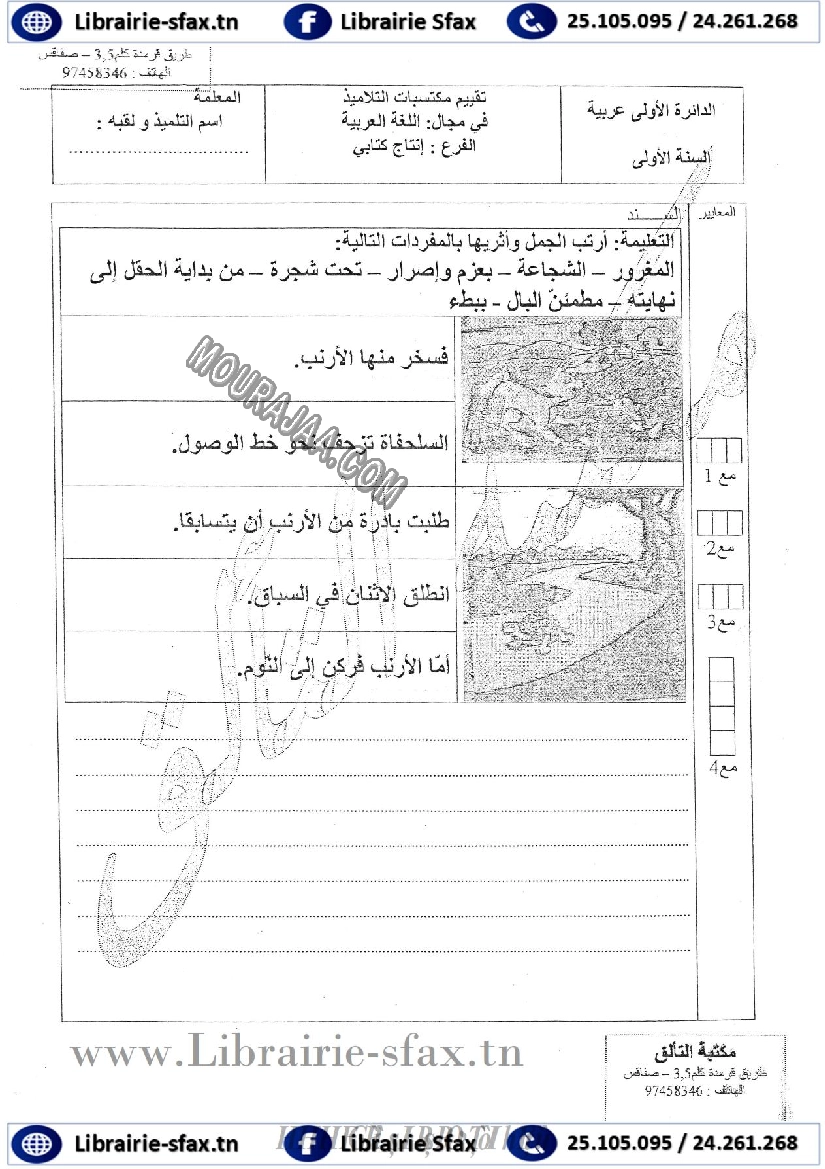 Librairie-sfax.tn Librairie Sfax 25.105.095 / 24.261.268
طريق قرمدة كلم3,5 – صفاقس
الهاتف : 97458346
الدائرة الأولى عربية
السنة الأولى
تقييم مكتسبات التلاميذ
في مجال: اللغة العربية
الفرع : إنتاج كتابي
المعلمة
اسم التلميذ و لقبه :
المعايير
السند
التعليمة: أرتب الجمل وأثريها بالمفردات التالية:
المغرور – الشجاعة – بعزم وإصرار – تحت شجرة – من بداية الحقل إلى
نهايته – مطمئنّ البال - ببطء
فسخر منها الأرنب.
السلحفاة تزحف نحو خط الوصول.
طلبت بادرة من الأرنب أن يتسابقا.
انطلق الاثنان في السباق.
أمّا الأرنب فركن إلى النّوم.
مع 1
مع2
مع3
مع4
MOURAJAA.COM
www.Librairie-sfax.tn
مكتبة التألق
طريق قرمدة كلم3,5 – صفاقس
الهاتف : 97458346
Librairie-sfax.tn Librairie Sfax 25.105.095 / 24.261.268